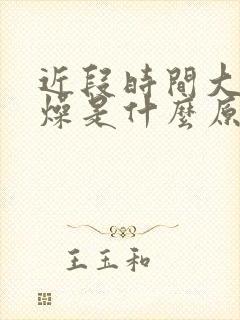 近段時間大
燥是什麼原
王玉和